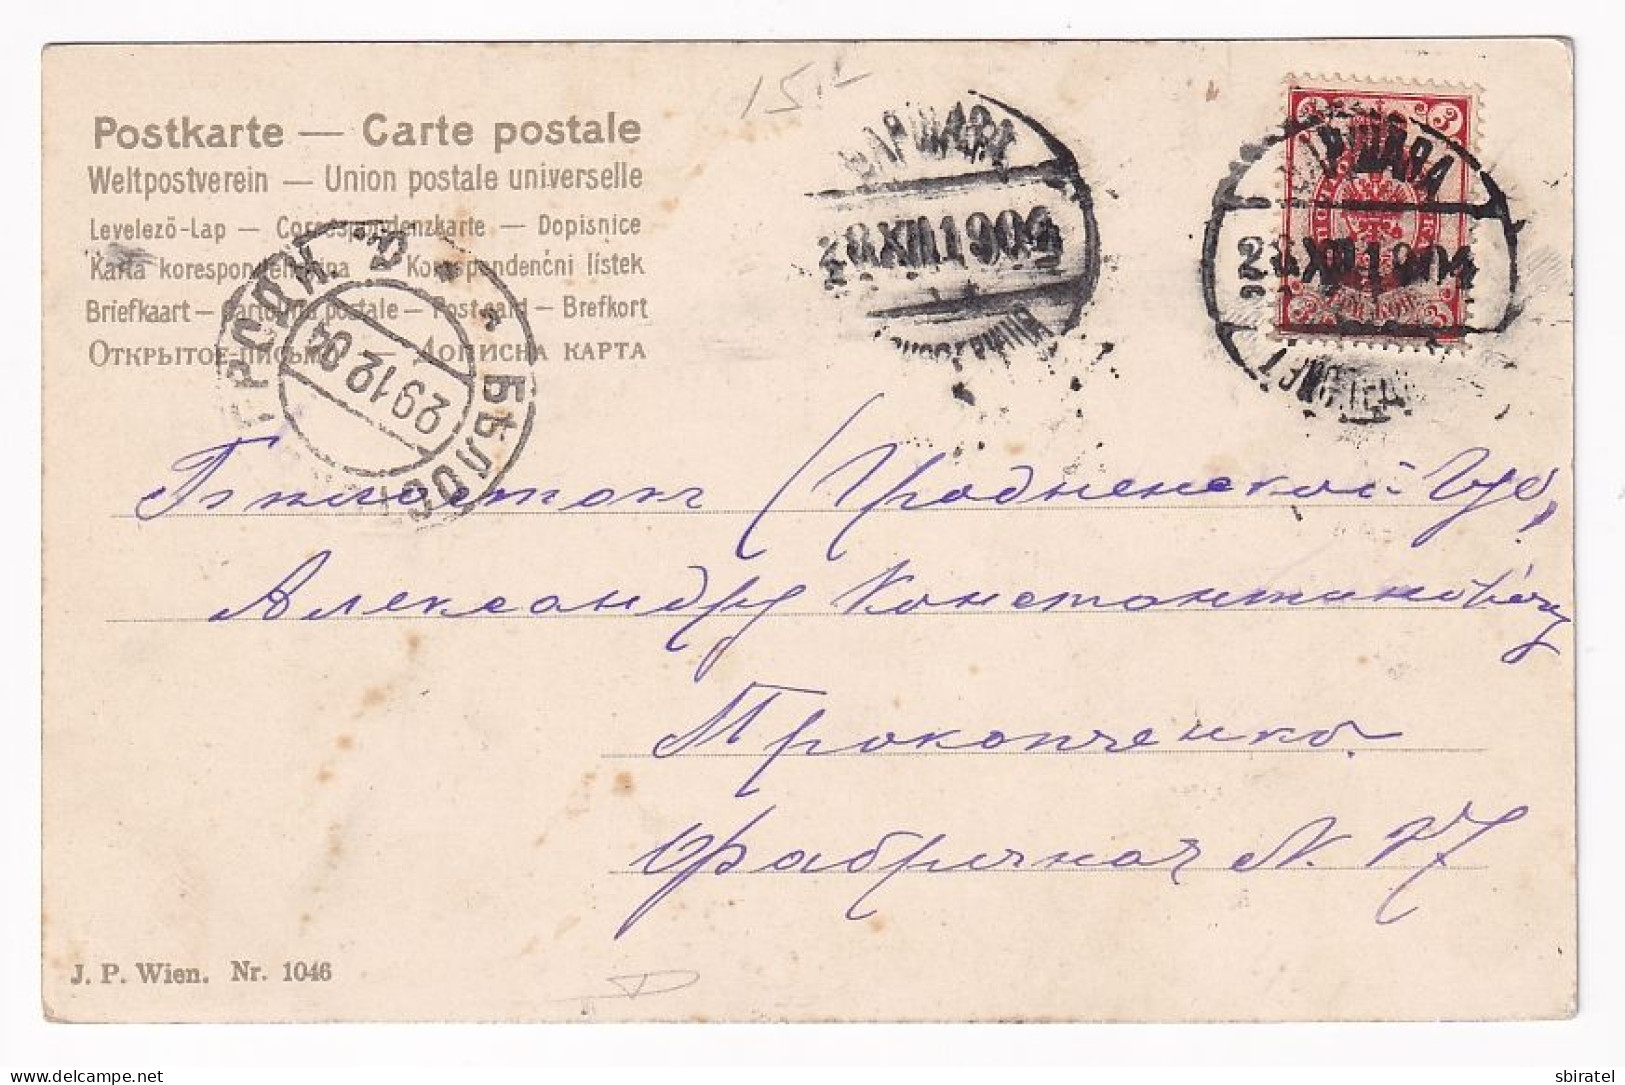 15.
Postkarte — Carte postale
Weltpostverein — Union postale universelle
Levelező-Lap — Correspondenzkarte — Dopisnice
Karta korespondencyjna — Korespondenční lístek
Briefkaart — Cartolina postale — Postcard — Brefkort
Открытое письмо — Дописна карта
ВАРШАВА
28 XII 1904
ВАРШАВА
28 XII 1904
3 3
3 3
БѢЛОСТОКЪ ГРОДН. Г.
29 12 04
Бѣлостокъ (Гродненской Губ,
Александру Константиновичу
Прокопченко.
Фабричная N.
J. P. Wien. Nr. 1046
sbiratel